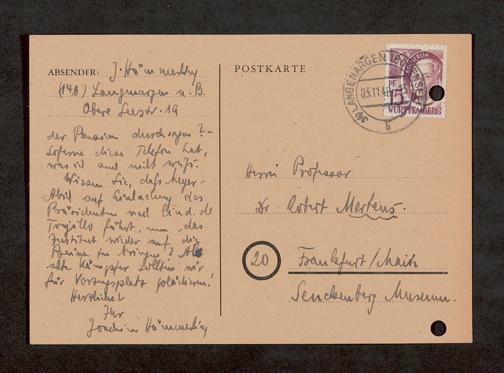 ABSENDER: J. Hämmerling
(14b) Langenargen a. B.
Obere Seestr. 19
der Pension durchgeben? –
Soferne diese Telefon hat,
was ich auch nicht weiß.
Wissen Sie, daß Meyer-
Abich auf Einladung des
Präsidenten nach Ciud. de
Trujillo fährt, um das
Institut wieder auf die
Beine zu bringen? Als
alte Kämpfer sollten wir
für Vorzugsplatz plädieren!
Herzlichst
Ihr
Joachim Hämmerling
POSTKARTE
LANGENARGEN (BODENSEE)
03.11.48
b
15
WÜRTTEMBERG
Herrn Professor
Dr. Robert Mertens.
20
Frankfurt/Main
Senckenberg Museum.